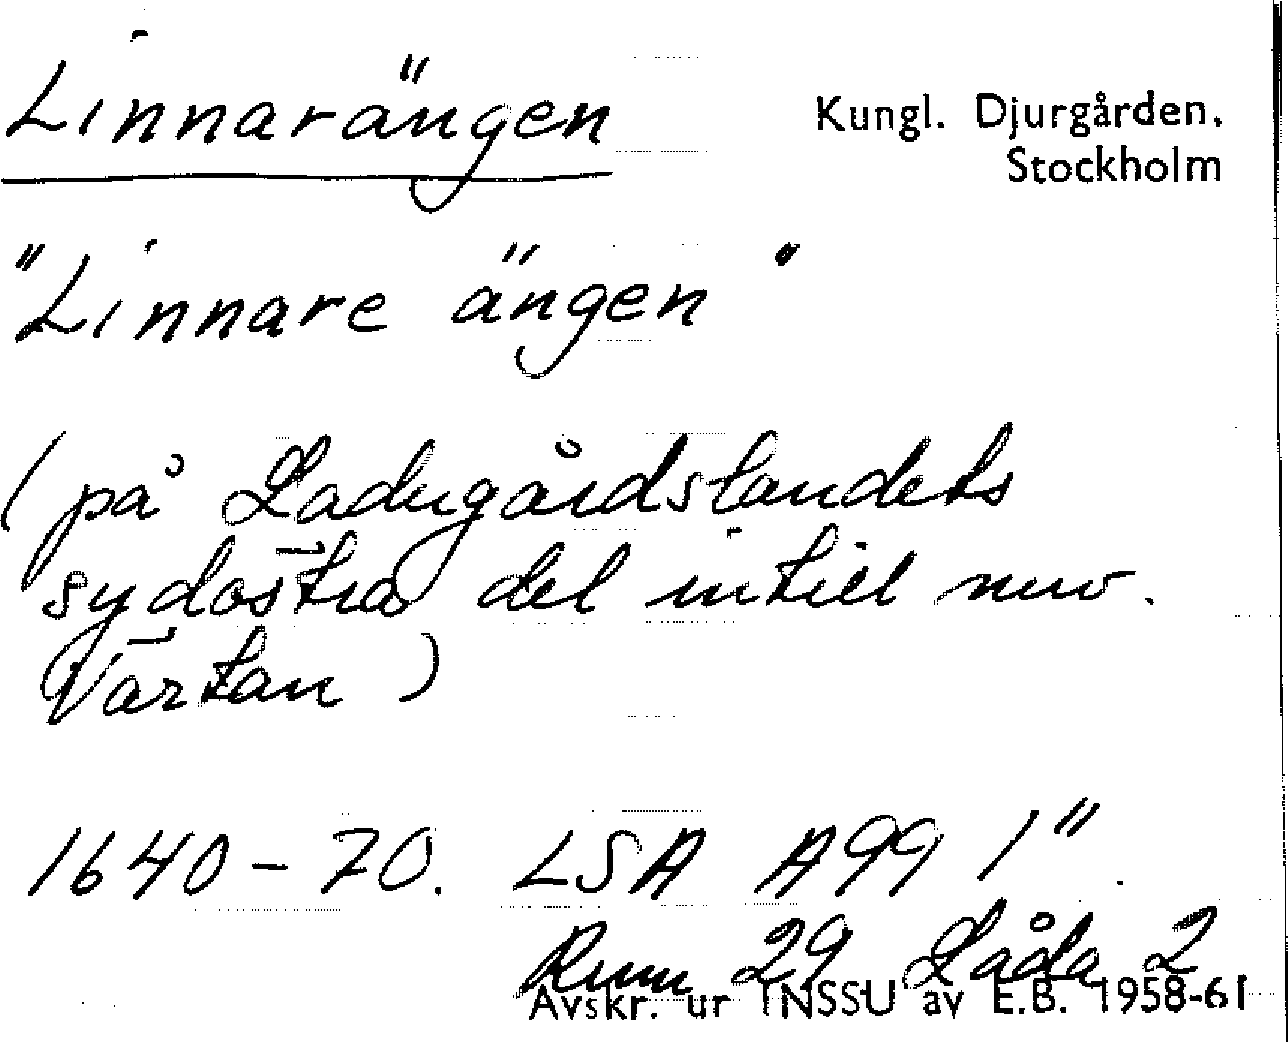 Linnarängen
Kungl. Djurgården,
Stockholm
"Linnare ängen"
(på Ladugårdslandets
sydöstra del intill nuv.
Värtan)
1640-70. LSA A99 1".
Rum 29 Låda 2
Avskr. ur INSSU av E.B. 1958-61